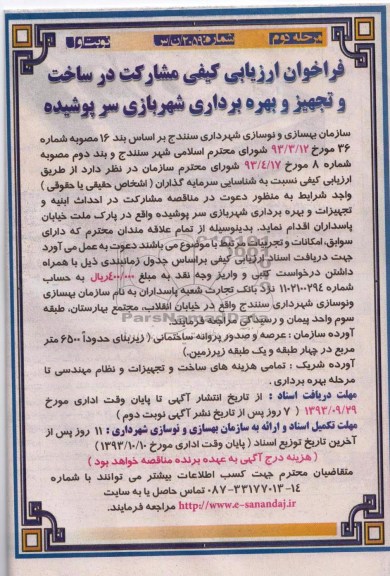 مرحله دوم شماره ۲۰۵۹/ن/س نوبت اول
فراخوان ارزیابی کیفی مشارکت در ساخت
و تجهیز و بهره برداری شهربازی سر پوشیده
سازمان بهسازی و نوسازی شهرداری سنندج بر اساس بند ۱۶ مصوبه شماره
۳۶ مورخ ۹۳/۳/۱۲ شورای محترم اسلامی شهر سنندج و بند دوم مصوبه
شماره ۸ مورخ ۹۳/۴/۱۷ شورای محترم سازمان در نظر دارد از طریق
ارزیابی کیفی نسبت به شناسایی سرمایه گذاران ( اشخاص حقیقی یا حقوقی )
واجد شرایط به منظور دعوت در مناقصه مشارکت در احداث ابنیه و
تجهیزات و بهره برداری شهربازی سر پوشیده واقع در پارک ملت خیابان
پاسداران اقدام نماید. بدینوسیله از تمام علاقه مندان محترم که دارای
سوابق، امکانات و تجربیات مرتبط با موضوع می باشند دعوت به عمل می آورد
جهت دریافت اسناد ارزیابی کیفی براساس جدول زمانبندی ذیل با همراه
داشتن درخواست کتبی و واریز وجه نقد به مبلغ ۴۰۰/۰۰۰ ریال به حساب
شماره ۱۱۰۲۱۰۰۲۹۴ نزد بانک تجارت شعبه پاسداران به نام سازمان بهسازی
ونوسازی شهرداری سنندج واقع در خیابان انقلاب، مجتمع بهارستان، طبقه
سوم واحد پیمان و رسیدگی مراجعه فرمایند.
آورده سازمان : عرصه و صدور پروانه ساختمانی ( زیربنای حدوداً ۶۵۰۰ متر
مربع در چهار طبقه و یک طبقه زیرزمین.)
آورده شریک : تمامی هزینه های ساخت و تجهیزات و نظام مهندسی تا
مرحله بهره برداری .
مهلت دریافت اسناد : از تاریخ انتشار آگهی تا پایان وقت اداری مورخ
۱۳۹۳/۰۹/۲۹ ( ۷ روز پس از تاریخ نشر آگهی نوبت دوم )
مهلت تکمیل اسناد و ارائه به سازمان بهسازی و نوسازی شهرداری : ۱۱ روز پس از
آخرین تاریخ توزیع اسناد ( پایان وقت اداری مورخ ۱۳۹۳/۱۰/۱۰)
( هزینه درج آگهی به عهده برنده مناقصه خواهد بود )
متقاضیان محترم جهت کسب اطلاعات بیشتر می توانند با شماره
۱۴-۰۸۷-۳۳۱۷۷۰۱۳ تماس حاصل یا به سایت
http://www.e-sanandaj.ir مراجعه فرمایند.